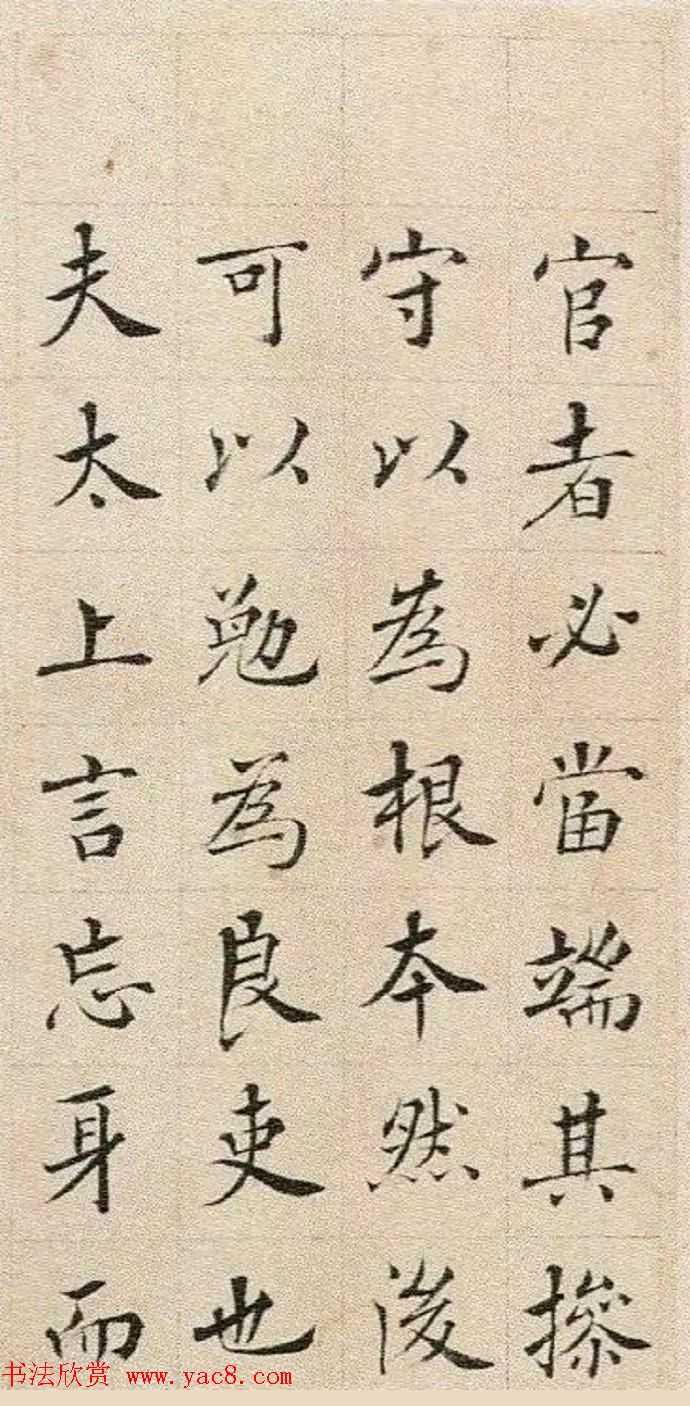 官者必當端其摻
守以為根本然後
可以勉為良吏也
夫太上言忘身而
书法欣赏 www.yac8.com